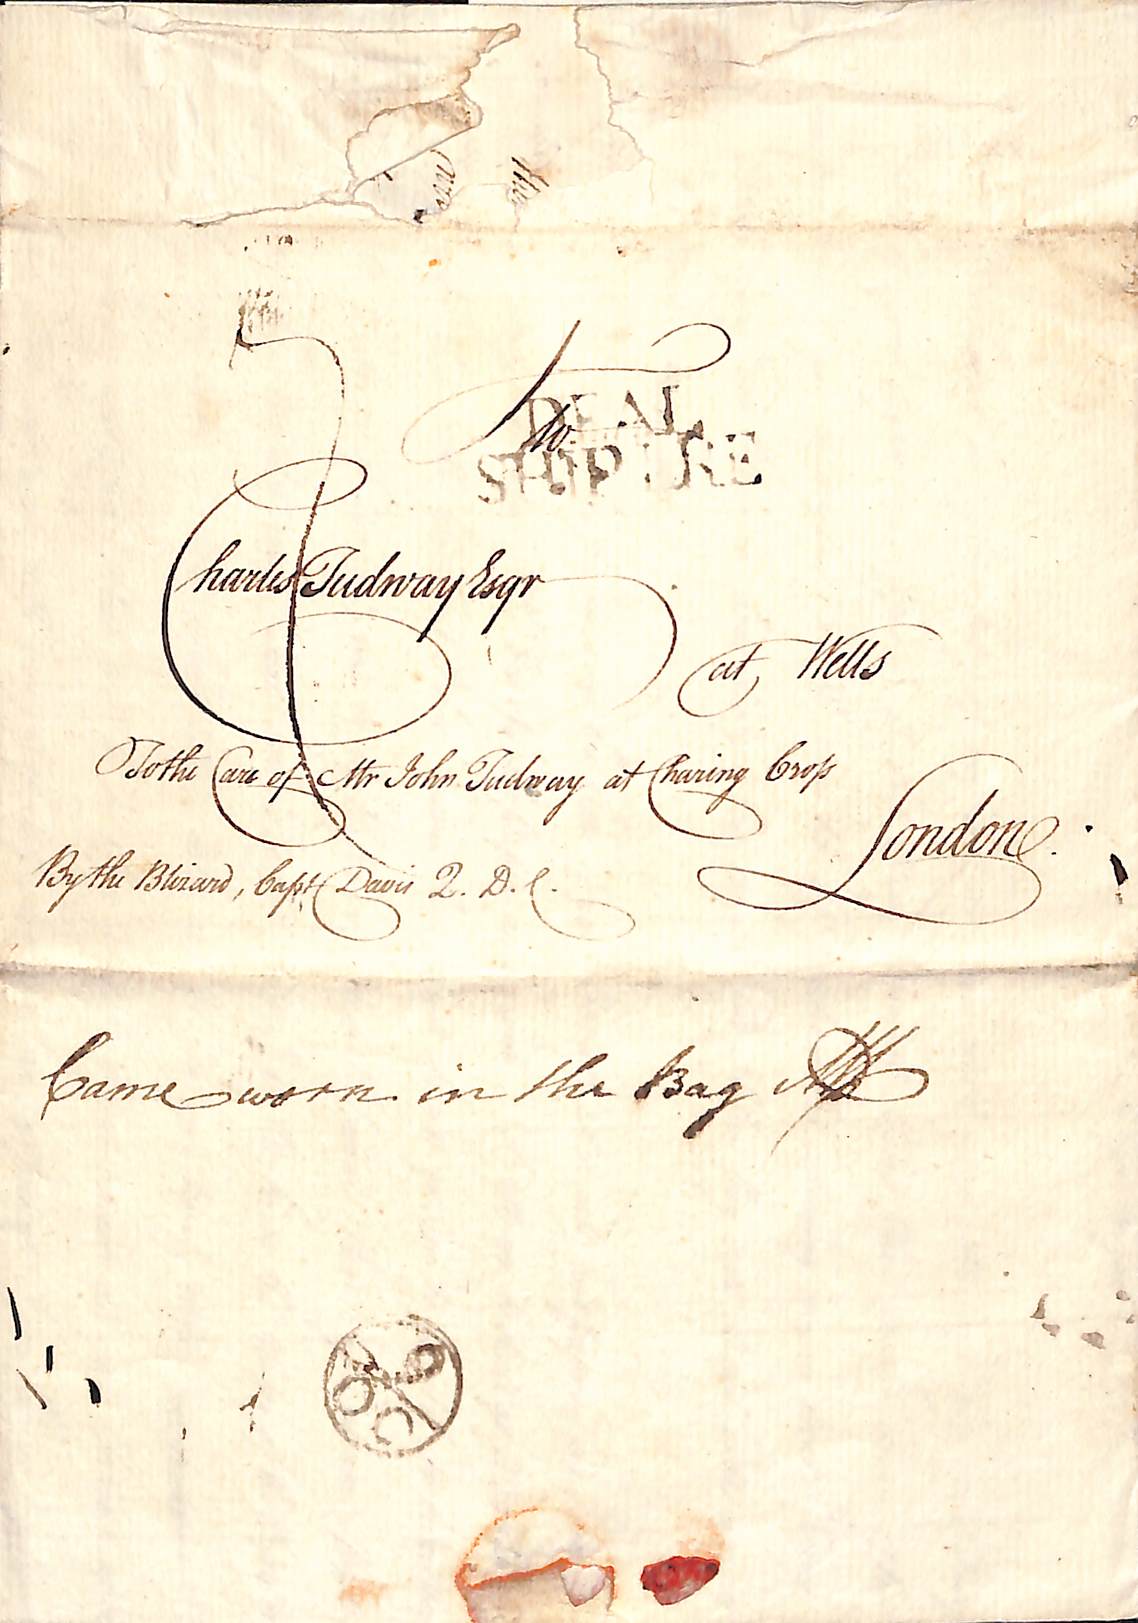 To
DEAL
SHIP LRE
Charles Tudway Esqr
at Wells
To the Care of Mr John Tudway at Charing Cross
London.
By the Blizard, Capt Davis Q. D. C.
Came worn in the Bag
OC